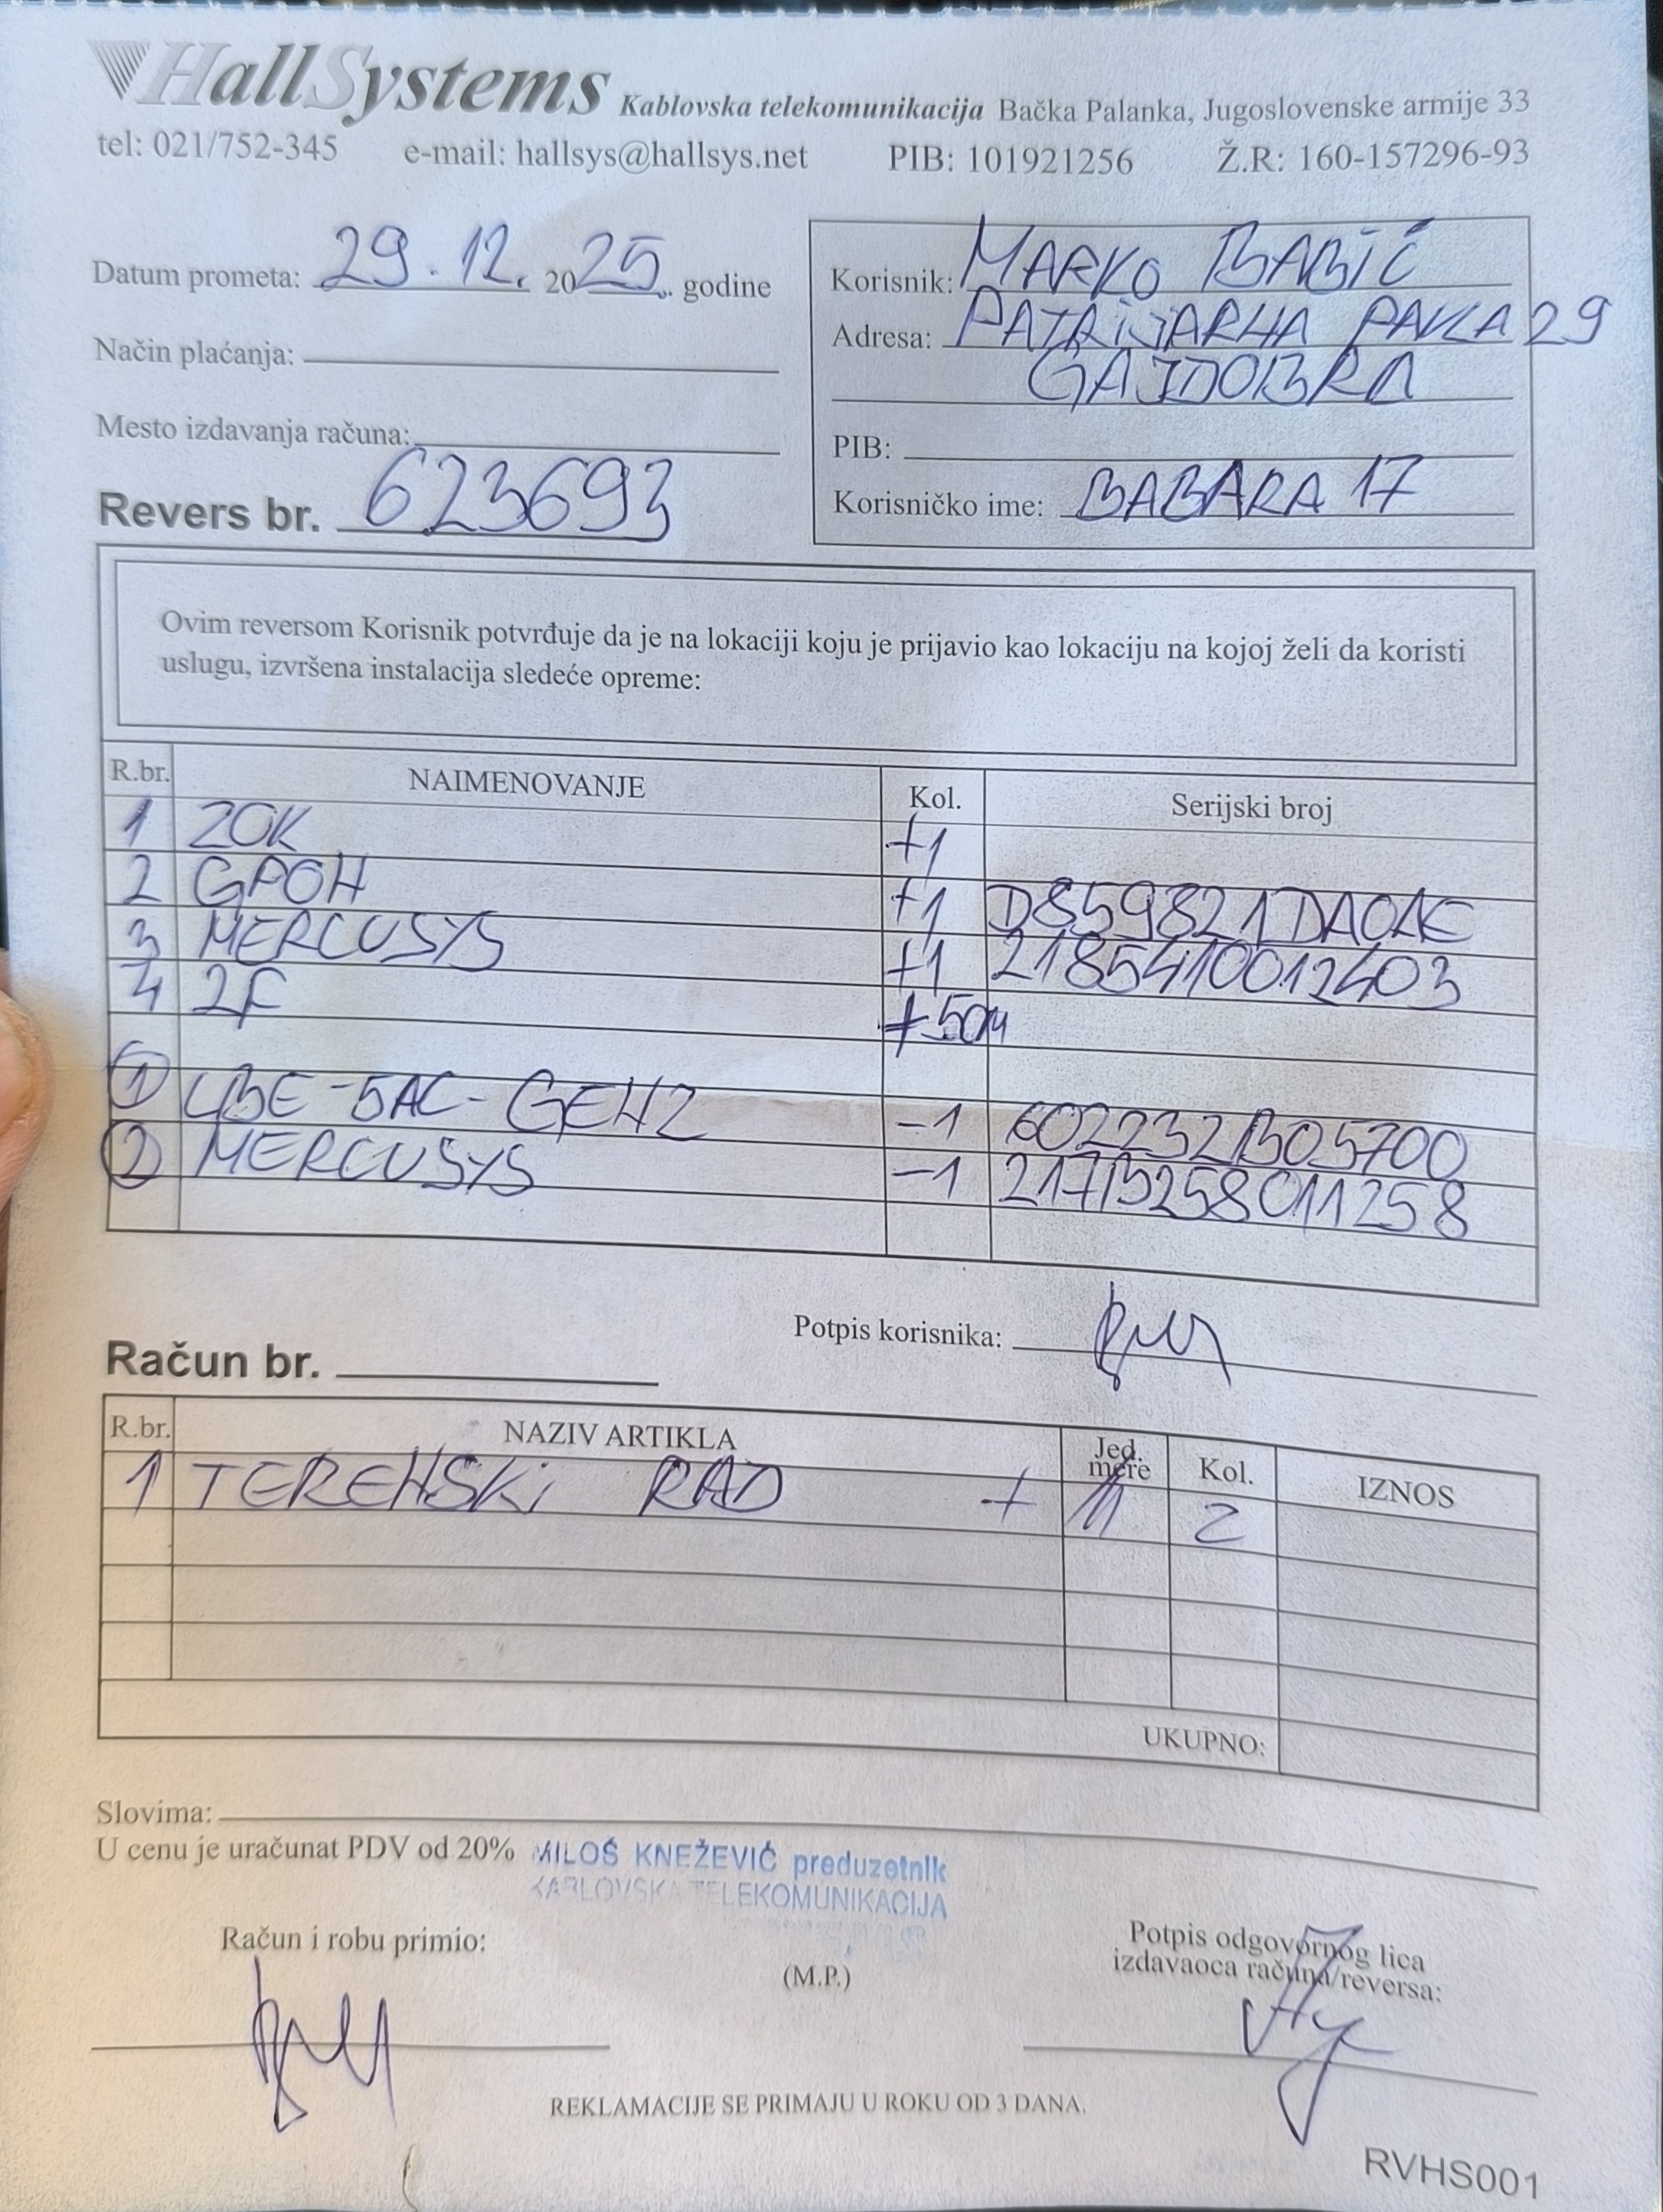 HallSystems Kablovska telekomunikacija Bačka Palanka, Jugoslovenske armije 33
tel: 021/752-345 e-mail: hallsys@hallsys.net PIB: 101921256 Ž.R: 160-157296-93
Datum prometa: 29.12. 2025. godine
Način plaćanja:
Mesto izdavanja računa:
Revers br. 623693
Korisnik: MARKO BABIĆ
Adresa: PATRIJARHA PAVLA 29
GAJDOBRA
PIB:
Korisničko ime: BABARA 17
Ovim reversom Korisnik potvrđuje da je na lokaciji koju je prijavio kao lokaciju na kojoj želi da koristi
uslugu, izvršena instalacija sledeće opreme:
R.br. NAIMENOVANJE Kol. Serijski broj
1 ZOK +1
2 GPON +1 D859821DA0AE
3 MERCUSYS +1 2185410012403
4 2F +50M
1 LBE-5AC-GEN2 -1 602232B05700
2 MERCUSYS -1 217B258011258
Potpis korisnika:
Račun br.
R.br. NAZIV ARTIKLA Jed. mere Kol. IZNOS
1 TERENSKI RAD + 2
UKUPNO:
Slovima:
U cenu je uračunat PDV od 20% MILOŠ KNEŽEVIĆ preduzetnik
KABLOVSKA TELEKOMUNIKACIJA
Račun i robu primio:
(M.P.)
Potpis odgovornog lica
izdavaoca računa/reversa:
REKLAMACIJE SE PRIMAJU U ROKU OD 3 DANA.
RVHS001